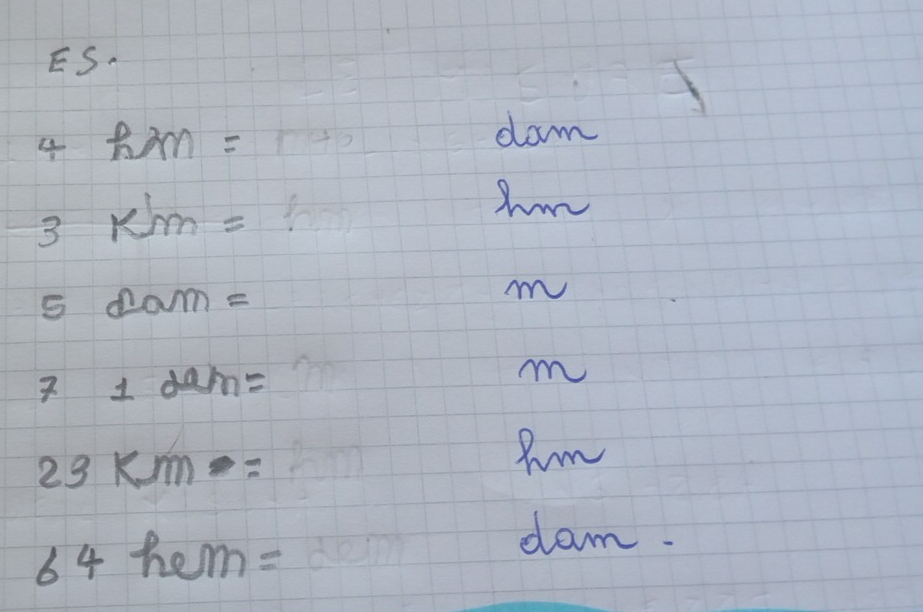 ES.
4 hm = dam
3 Km = hm
5 dam = m
7 1 dam = m
23 Km = hm
64 hem = dam.